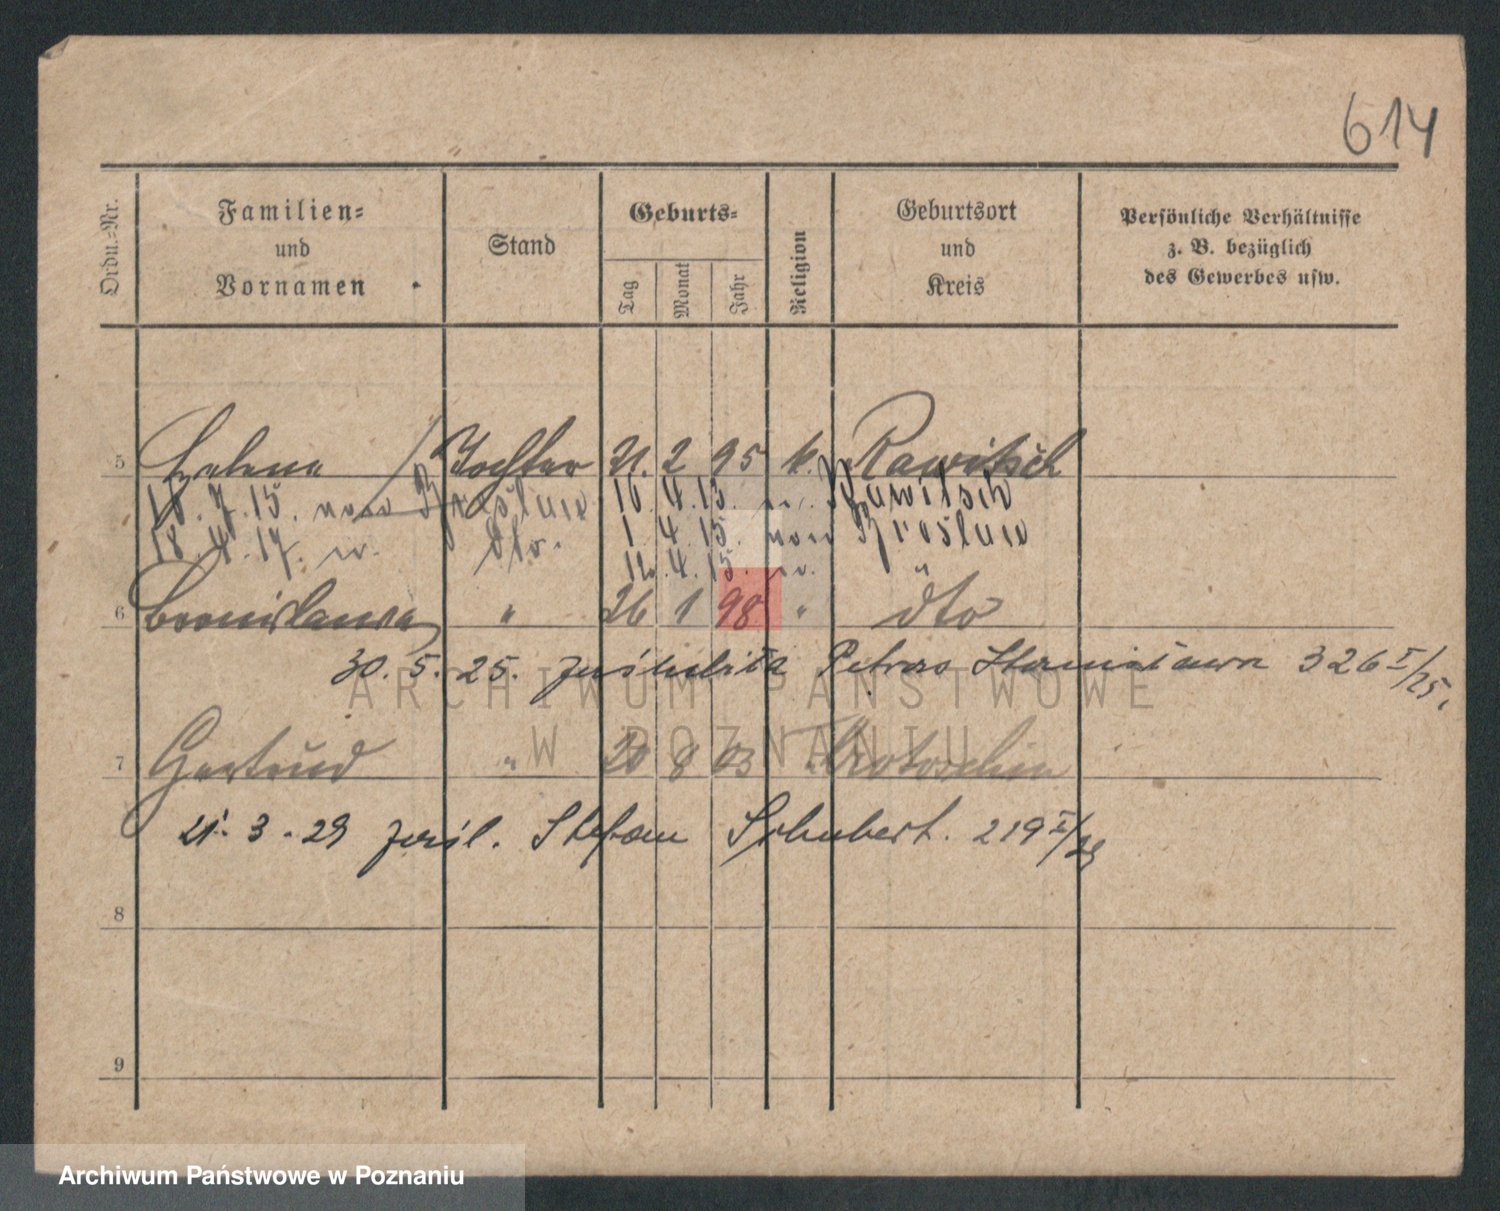 614
Ordn.-Nr.
Familien-
und
Vornamen
Stand
Geburts-
Tag
Monat
Jahr
Religion
Geburtsort
und
Kreis
Persönliche Verhältnisse
z. B. bezüglich
des Gewerbes usw.
5 Helene Tochter 21. 2 95 k. Rawitsch
18. 7. 15. nach Breslau 16. 4. 13. v. Rawitsch
18. 4. 17. v. dto. 1. 4. 15. nach Breslau
12. 4. 15. v.
6 Bronislawa " 26 1 98 " dto
30. 5. 25. Petras Stanisława 326 I/25.
7 Gertrud " 20 8 03 " Krotoschin
21. 3. 29 Stefan Schubert. 219 I/29
8
9
ARCHIWUM PAŃSTWOWE
W POZNANIU
Archiwum Państwowe w Poznaniu